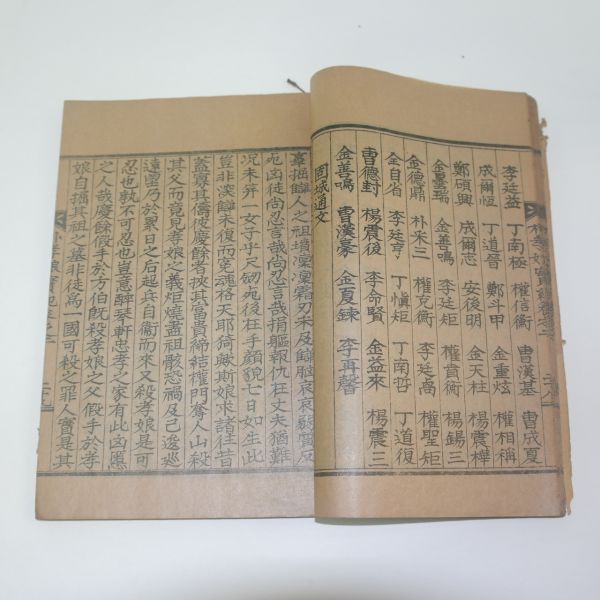 李廷益 丁南極 權信衡 曺漢基 曺成夏
成爾恆 丁道晉 鄭斗甲 金重炫 權相稱
鄭碩興 成爾志 安後明 金天柱 楊震樺
金墨瑞 金善鳴 李廷矩 權賁衡 楊錫三
金德鼎 朴釆三 權克衡 李廷禼 權聖矩
全自省 李廷亨 丁愼矩 丁南哲 丁道復
曺德封 楊震後 李命賢 金益來 楊震三
金善鳴 曺漢豪 金夏鍊 李再馨
固城通文
辜掘讎人之祖墳凜凜霜刃未及讎腹哀哀發冤反
死凶徒尚忍言哉尚忍言哉捐軀報仇在丈夫猶難
況未笄一女子乎尺劒死後在手顔貌七日如生此
豈非深讎未復而冤魂格天耶猗歟斯娘求諸往昔
蓋寡其儔彼慶餘者挾其富貴締結權門奪人山殺
其父而竟見孝娘之義炬燒盡祖骸恐禍及己逡巡
遠竄乃於累日之后起兵自衛而來又殺孝娘是可
忍也孰不可忍也豈意醉琹軒忠孝之家有此凶慝
之人哉慶餘假手於方伯旣殺孝娘之父假手於孝
娘自掘其祖之墓非徒爲一國可殺之罪人實是其